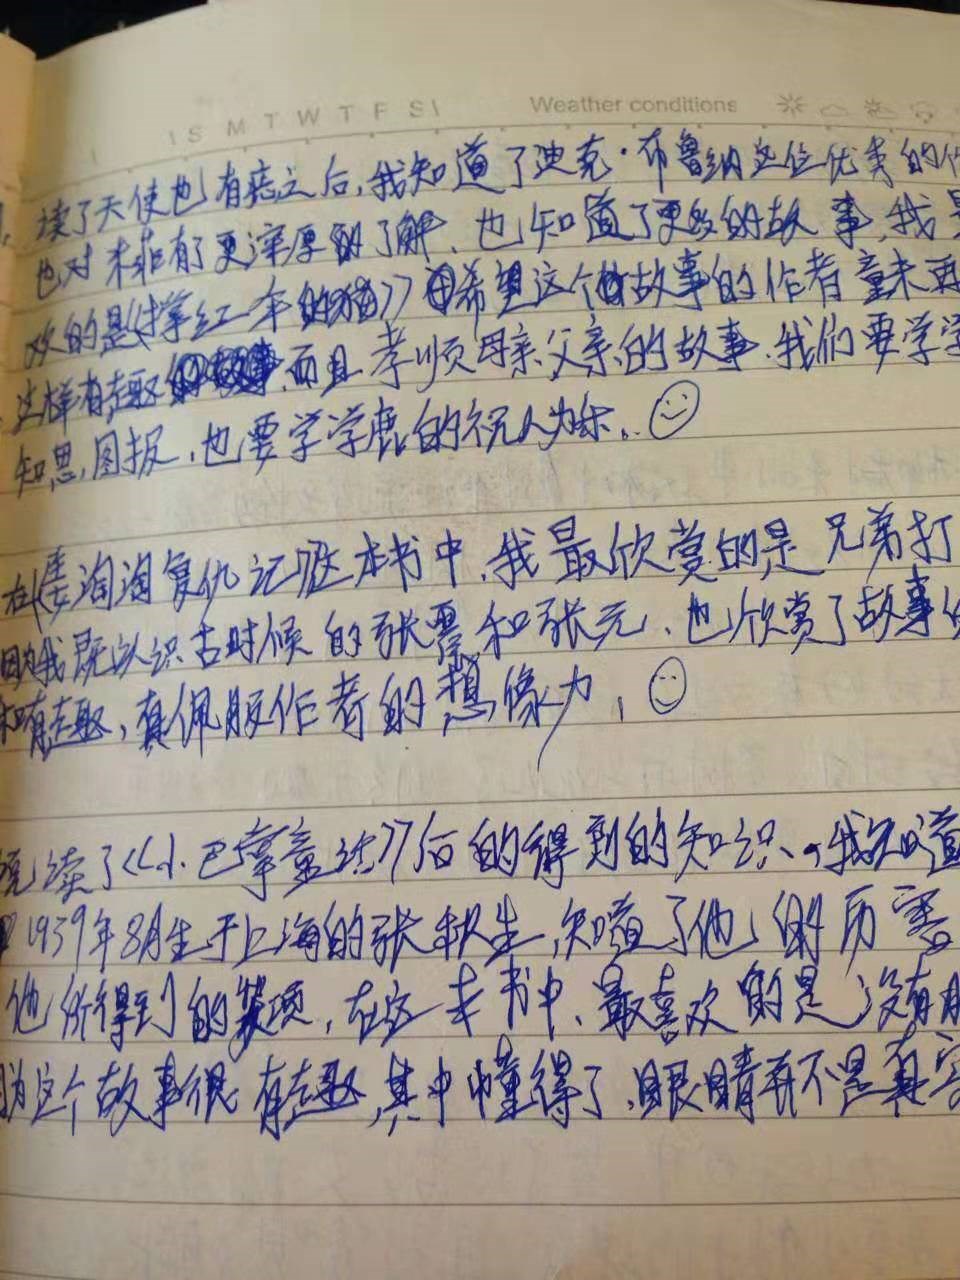 I S M T W T F S I Weather conditions
读了天使也有痣之后,我知道了迪克·布鲁纳这位优秀的作
也对米菲有了更深厚的了解,也知道了更多的故事,我最
欢的是《掌红伞的猫》希望这个故事的作者童末再
这样有趣而且孝顺母亲父亲的故事.我们要学学
知恩,图报,也要学学鹿的祝人为乐.
在淘淘复仇记这本书中,我最欣赏的是兄弟打
因为我既认识古时候的张和张元、也欣赏了故事的
和有趣,真佩服作者的想像力,
读了《小巴掌童话》后的得到的知识、我知道
1939年8月生于上海的张秋生,知道了他的历害
他所得到的奖项,在这本书中、最喜欢的是没有
因为这个故事很有趣,其中懂得了,眼睛再不是真